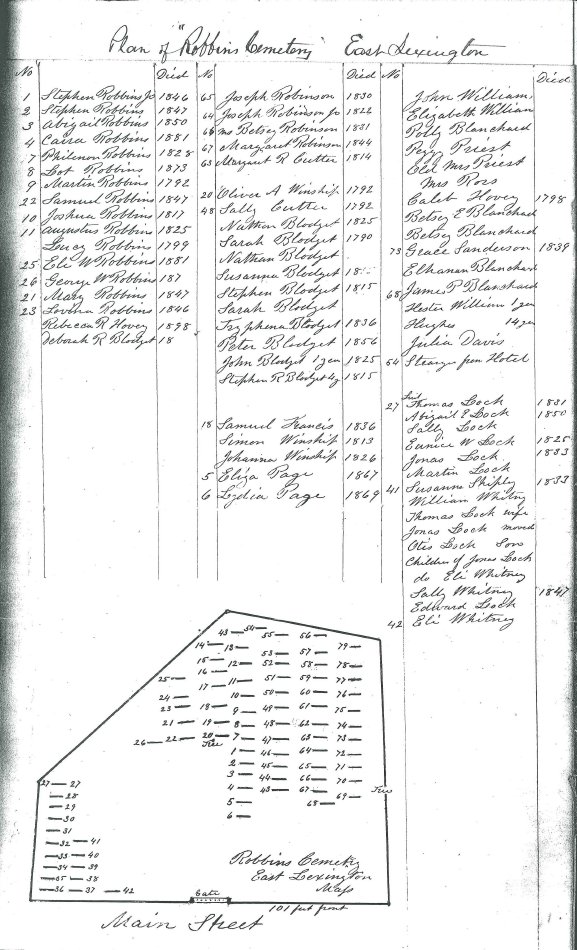 Plan of "Robbins Cemetery" East Lexington
No Died No Died No Died
1 Stephen Robbins Jr 1846
2 Stephen Robbins 1847
3 Abigail Robbins 1850
4 Caira Robbins 1881
7 Philemon Robbins 1828
8 Lot Robbins 1873
9 Martin Robbins 1792
22 Samuel Robbins 1847
10 Joshua Robbins 1817
11 Augustus Robbins 1825
Loucy Robbins 1799
25 Eli W Robbins 1881
26 George W Robbins 187
21 Mary Robbins 1847
23 Lovina Robbins 1846
Rebecca R Hovey 1898
Deborah R Blodget 18
65 Joseph Robinson 1830
64 Joseph Robinson Jr 1822
66 Mrs Betsey Robinson 1831
67 Margaret Robinson 1844
63 Margaret R Cutter 1814
20 Oliver A Winship 1792
48 Sally Cutter 1792
Nathan Blodget 1825
Sarah Blodget 1790
Nathan Blodget
Susanna Blodget 18
Stephen Blodget 1815
Sarah Blodget
Tryphena Blodget 1836
Peter Blodget 1856
John Blodget 1 year 1825
Stephen R Blodget 4 y 1815
18 Samuel Francis 1836
Simon Winship 1813
Johanna Winship 1826
5 Eliza Page 1867
6 Lydia Page 1869
John William
Elizabeth William
Polly Blanchard
Pegy Priest
Old Mrs Priest
Mrs Ross
Caleb Hovey 1798
Betsey E Blanchard
Betsey Blanchard
73 Grace Sanderson 1839
Elhanan Blanchard
68 James P Blanchard
Hester William 1 year
Hughes 14 year
Julia Davis
54 Stranger from Hotel
27 Thomas Lock 1831
Abigail E Lock 1850
Sally Lock
Eunice W Lock 1825
Jonas Lock 1833
Martin Lock
41 Susanna Shiply 1833
William Whitny
Thomas Lock wife
Jonas Lock moved
Otis Lock Sons
Children of Jonas Lock
do Eli Whitney
Sally Whitney 1847
Edward Lock
42 Eli Whitney
43 54 55 56
14 13 79
53 57
15 12 52 58 78
16
25 17 11 51 59 77
24 10 50 60 76
23 18 9 49 61 75
21 19 8 48 62 74
26 22 20 7 47 63 73
Tree
1 46 64 72
2 45 65 71
3 44 66 70
4 43 67 69 Tree
5 68
6
27 27
28
29
30
31
32 41
33 40
34 39
35 38
36 37 42
Robbins Cemetry
East Lexington
Mass
Gate
101 feet front
Main Street